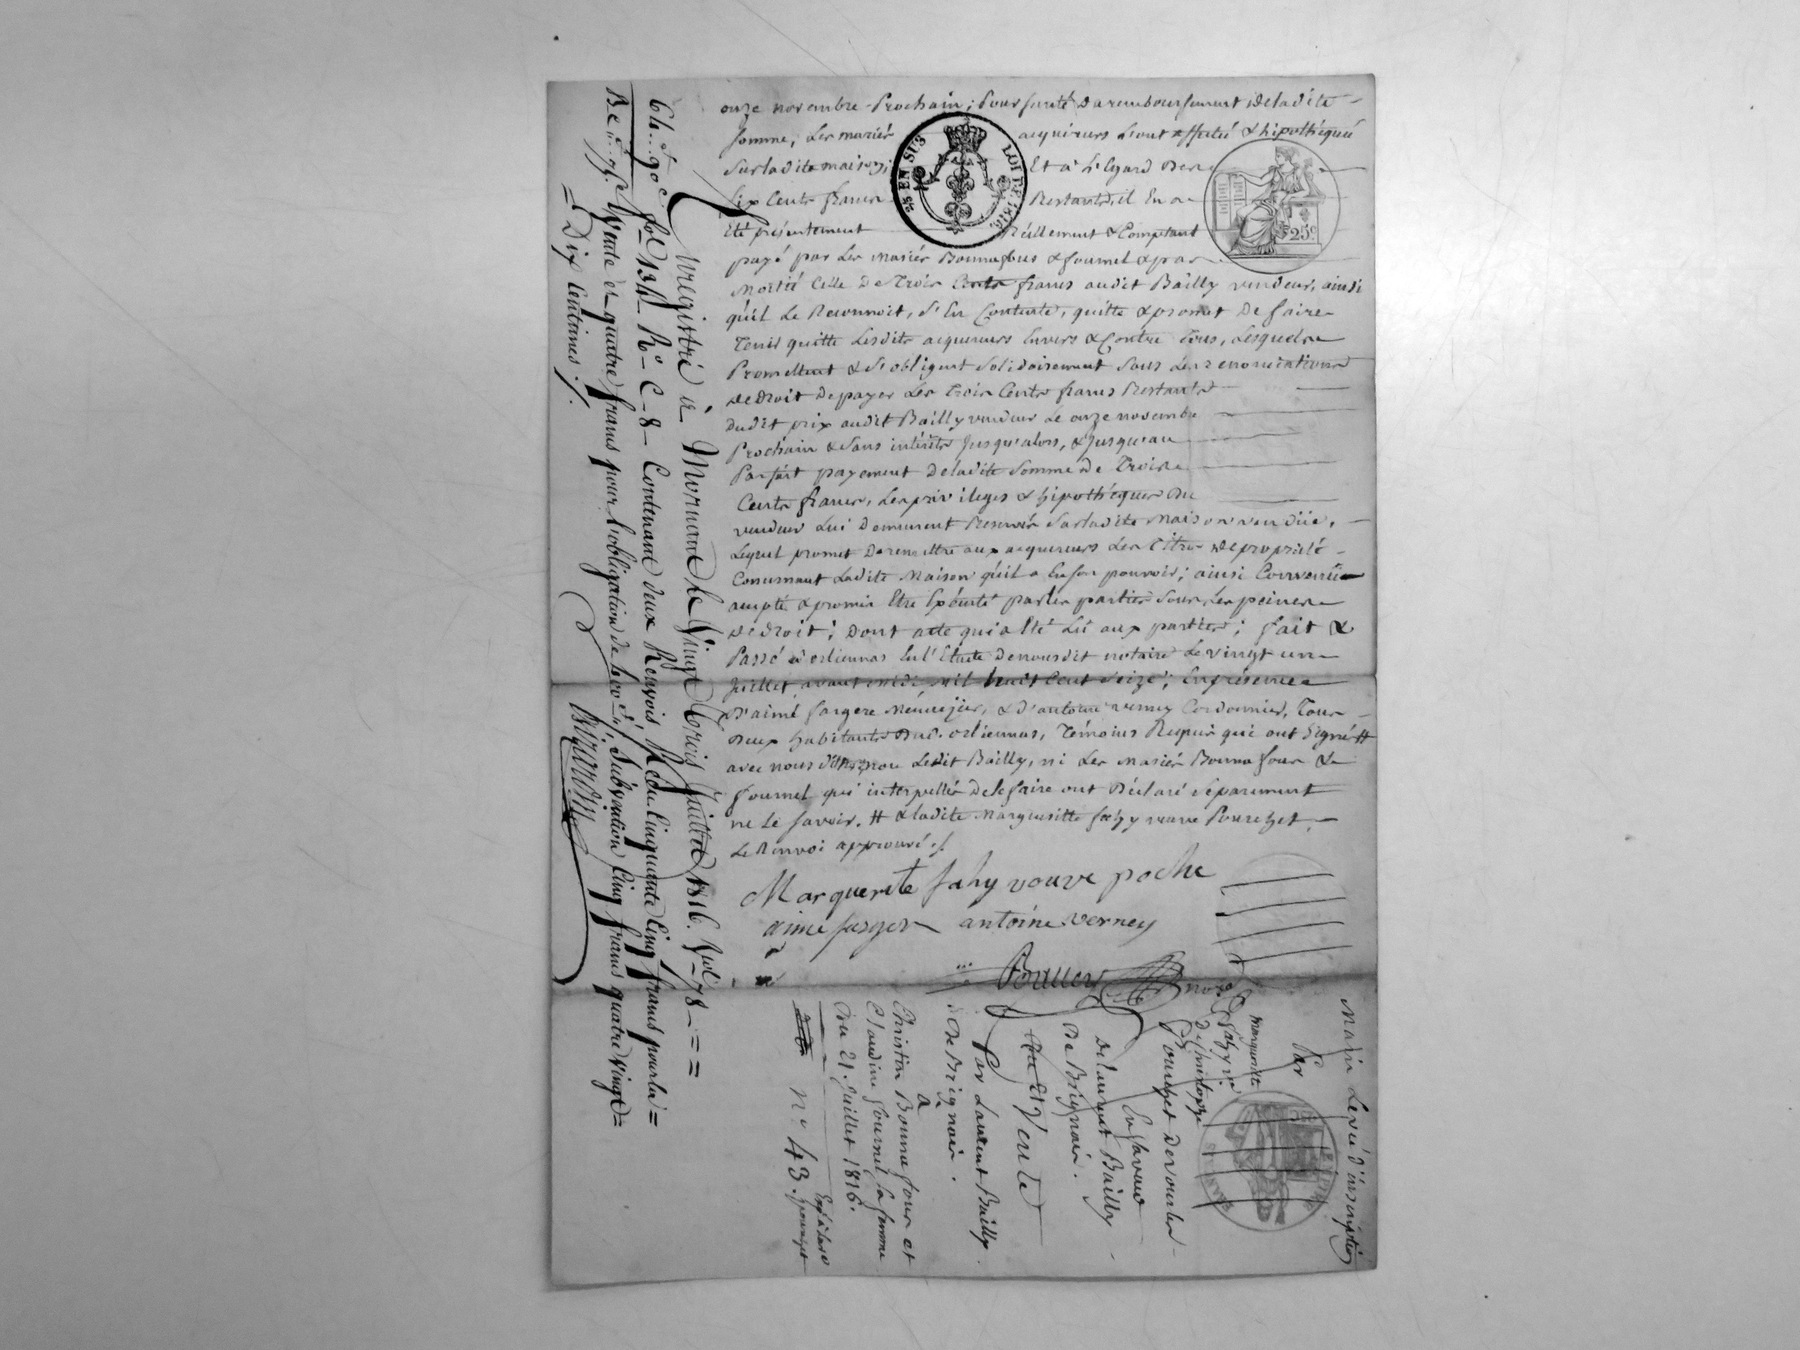 onze novembre Prochain; Pour sureté Du remboursement Deladite
somme, Les mariés acquéreurs L'ont affecté & hipothéqué
Sur ladite maison; Et a L'Egard Des
Six Cents francs Restants, il En a
Eté présentement Réellement & Comptant
payé par Les mariés Bonnafous & fournel & par
Moitié Celle De Trois Cents francs audit Bailly vendeur, ainsi
qu'il Le Reconnoit, s'En Contente, quitte & promet De faire
Tenir quitte Lesdits acquereurs Envers & Contre Tous, Lesquels
Promettent & s'obligent Solidairement Sous Les renonciations
De Droit De payer Les Trois Cents francs Restants
Dudit prix audit Bailly vendeur Le onze novembre
Prochain & Sans intérêts Jusqu'alors, & Jusqu'au
Parfait payement De ladite Somme De Trois
Cents francs, Les privileges & hipothéques Du
vendeur Lui Demeurent Reservés Sur ladite Maison vendüe,
Lequel promet De remettre aux acquereurs Les Titres De propriété
Concernant Ladite Maison qu'il a En son pouvoir; ainsi Convenu
accepté & promis Etre Exécuté par les parties Sous Les peines
De Droit; Dont acte qui a Eté Lû aux parties; fait &
Passé à orliennas En l'Etude De nousdit notaire Le vingt un
Juillet avant midi, mil huit Cent Seize; En présence
D'aimé fargere Menuisier, & D'antoine verney Cordonnier, Tous
Deux habitants Dud. orliennas, Témoins Requis qui ont Signé #
avec nous notaire non Ledit Bailly, ni Les Mariés Bonnafour &
fournel qui interpellés De le faire ont Déclaré séparement
ne Le savoir. # & ladite Marguerite fahy veuve Pourchet
Le Renvoi approuvé ./.
Marguerite fahy vouve poche
aime farger antoine verney
Boiron nore
25 EN SUS
LOI DE 1816
25c
Enregistré à Mornant le Vingt Trois Juillet 1816. fol 78
fol 134 Ro C. 8 Contenant deux Renvois Reçu Cinquante Cinq francs pour la
Vente et quatre francs pour l'obligation de, Subvention Cinq francs quatre Vingt
Dix Centimes ./.
64..90c
Marin Levée d'inscription
Par
Marguerite
fahy ve
De Christophe
Pourchet De vourles
En faveur
De Laurent Bailly
De Brignais.
Et Vente
Par Laurent Bailly
De Brignais.
A
Christian Bonnafour et
Claudine fournel Sa femme
Du 21. Juillet 1816.
No 43.